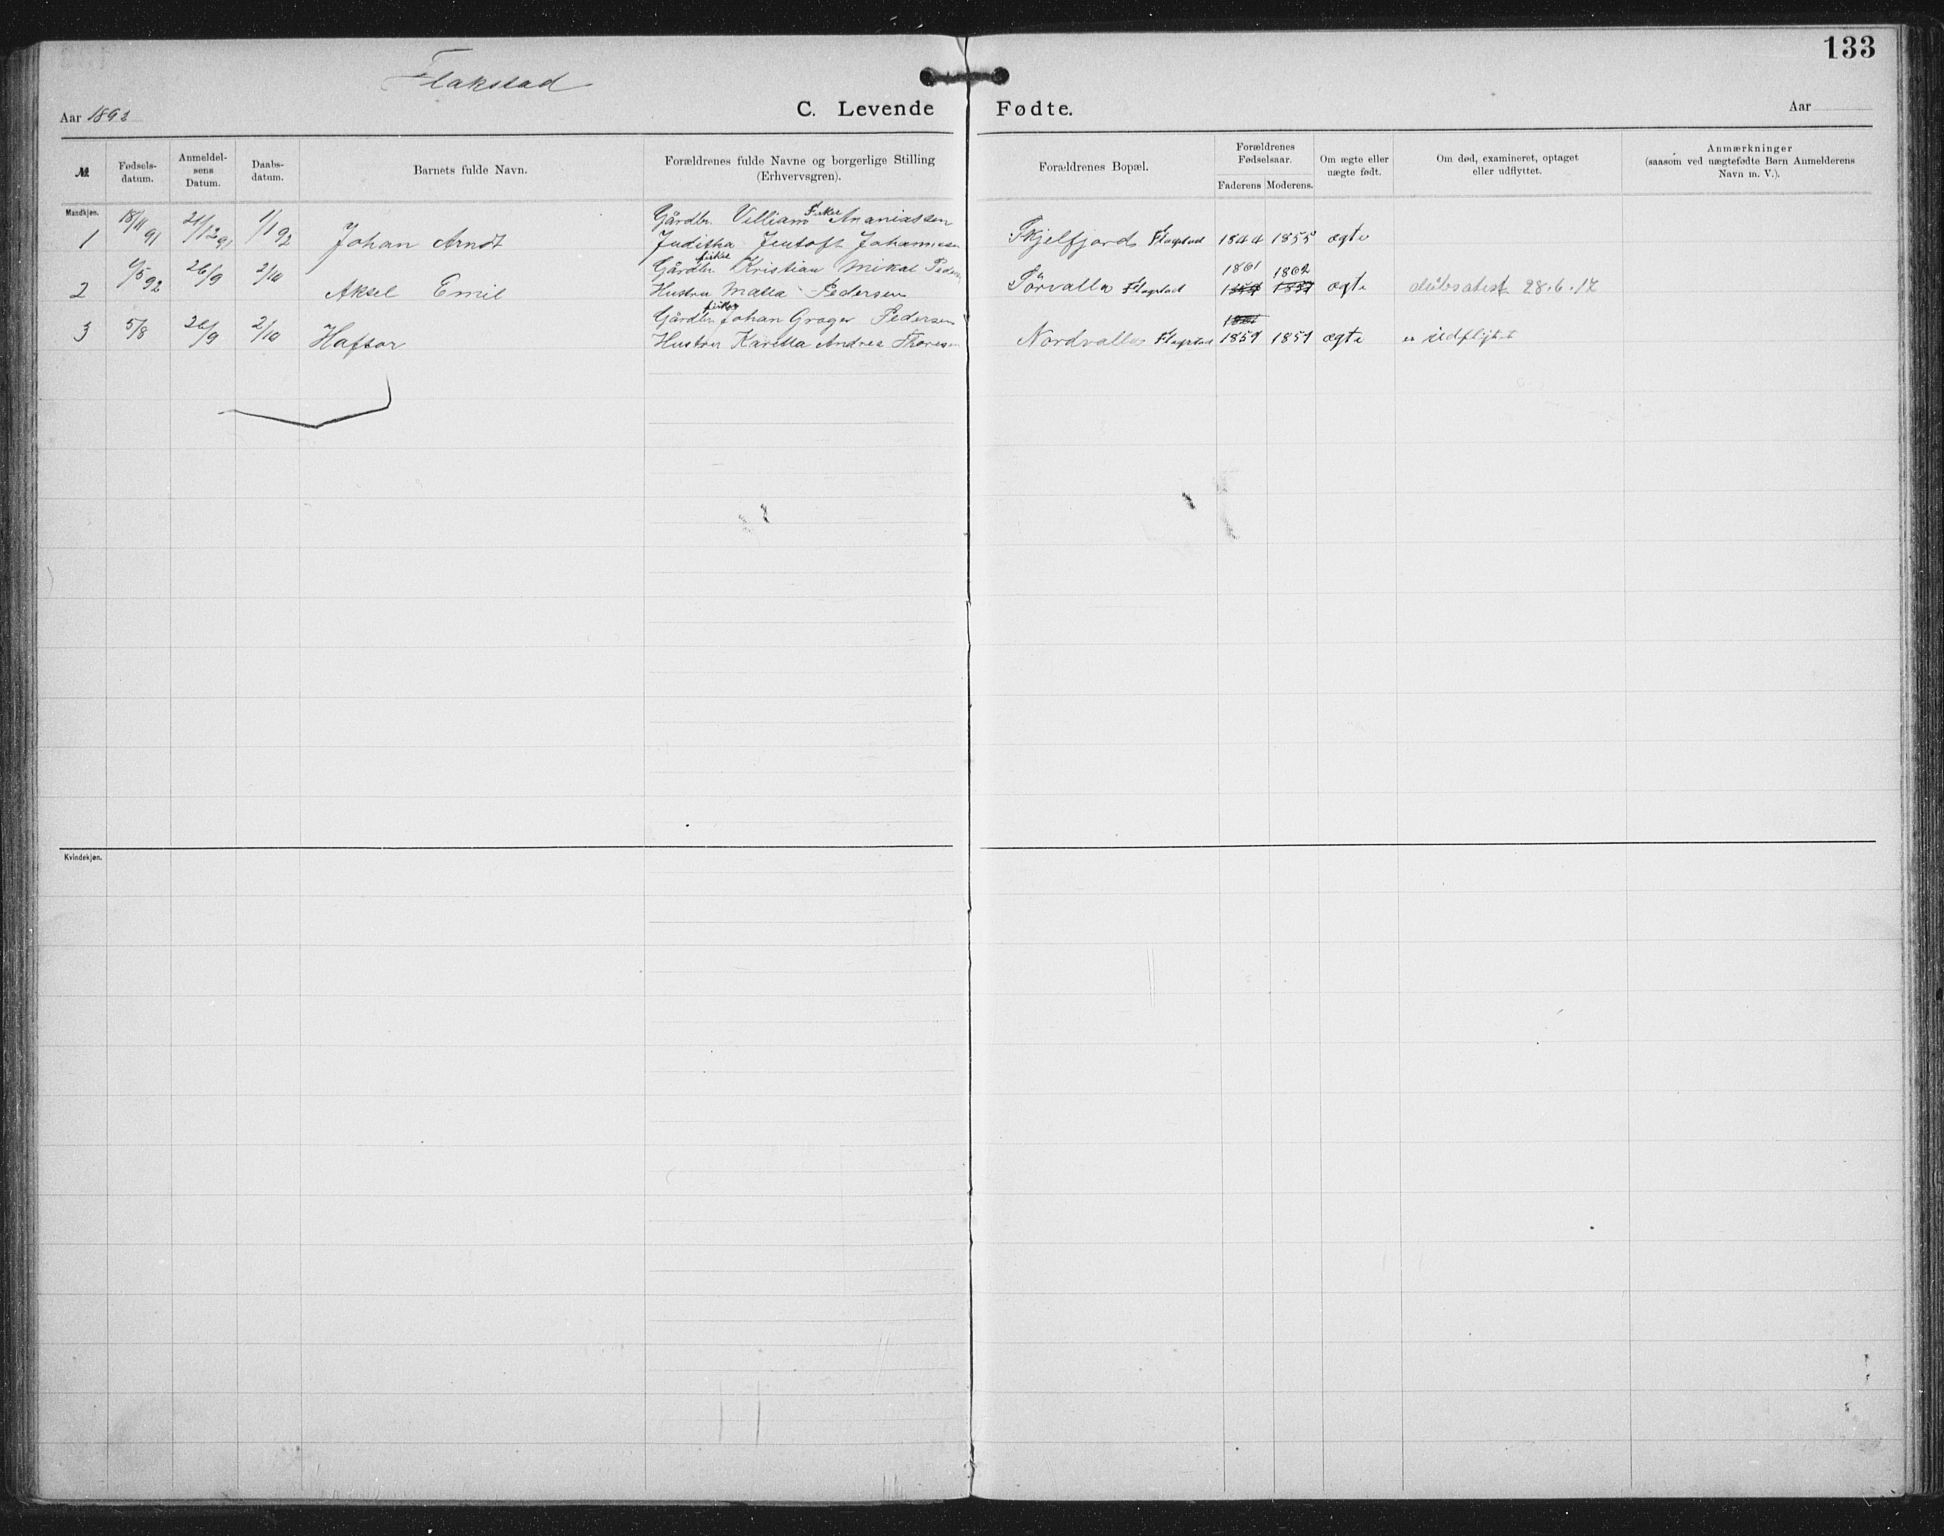 133
Flakstad
Aar 1892
C. Levende Fødte.
Aar
№
Fødsels-
datum.
Anmeldel-
sens
Datum.
Daabs-
datum.
Barnets fulde Navn.
Forældrenes fulde Navne og borgerlige Stilling
(Erhvervsgren).
Forældrenes Bopæl.
Forældrenes
Fødselsaar.
Faderens Moderens.
Om ægte eller
uægte født.
Om død, examineret, optaget
eller udflyttet.
Anmærkninger
(saasom ved uægtefødte Børn Anmelderens
Navn m. V.).
Mandkjøn.
Gårdbr. Fisker Villiam Ananiassen
1 18/11 91 21/12 91 1/1 92 Johan Arndt Juditha Jentoft Johannesen Skjelfjord Flagstad 1844 1855 ægte
Gårdbr. fisker Kristian Mikal Pedersen 1861 1862
2 /5 92 26/9 2/10 Aksel Emil Hustru Matta Pedersen Sörvalle Flagstad ægte dåbsatest 28.6.17
Gårdbr. fisker Johan Grøger Pedersen
3 5/8 26/9 2/10 Haftor Hustru Karetta Andrea Thoresen Nordvalle Flagstad 1851 1851 ægte er udflyttet
Kvindekjøn.